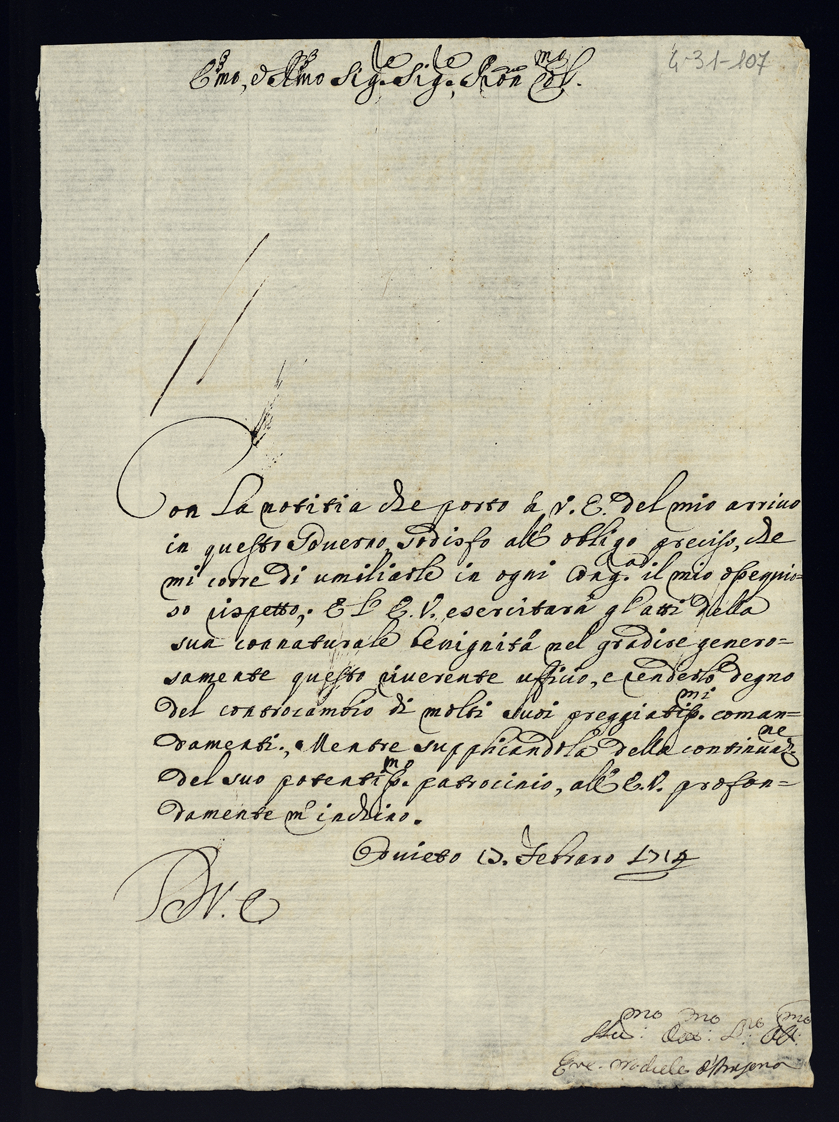 Em̃o, e Rm̃o Sig.re Sig.re, Pron Col.mo
4-31-107
Con la notitia che porto à V. E. del mio arriuo
in questo Gouerno, sodisfo all' obligo preciso, che
mi corre di umiliarle in ogni Cong.ra il mio ossequio=
so rispetto; E l' E. V. esercitarà gl'atti della
sua connaturale benignità nel gradire genero=
samente questo riuerente ufficio, e renderlo degno
del controcambio di molti suoi preggiatiss.mi coman=
damenti., Mentre supplicandola della continuaz.ne
del suo potentiss.mo patrocinio, all' E. V. profon=
damente m' inchino.
Oruieto 13. Febraro 1714
D V. E.
Hu.mo Deu.mo S.re Obl.mo